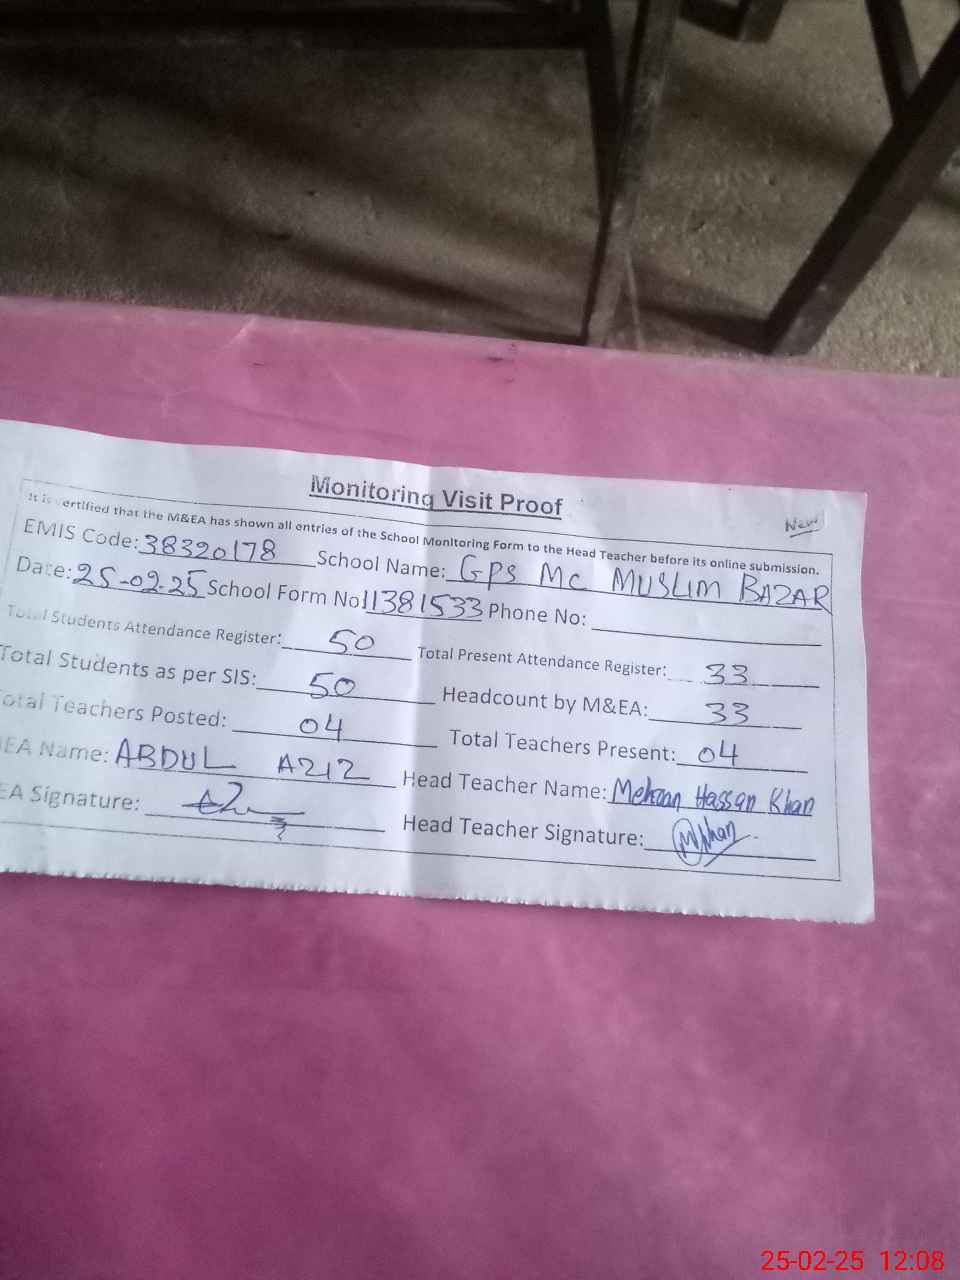 Monitoring Visit Proof
New
It is certified that the M&EA has shown all entries of the School Monitoring Form to the Head Teacher before its online submission.
EMIS Code: 38320178 School Name: GPS MC MUSLIM BAZAR
Date: 25-02-25 School Form No 11381533 Phone No:
Total Students Attendance Register: 50 Total Present Attendance Register: 33
Total Students as per SIS: 50 Headcount by M&EA: 33
Total Teachers Posted: 04 Total Teachers Present: 04
EA Name: ABDUL AZIZ Head Teacher Name: Hassan Khan
EA Signature: Head Teacher Signature:
25-02-25 12:08